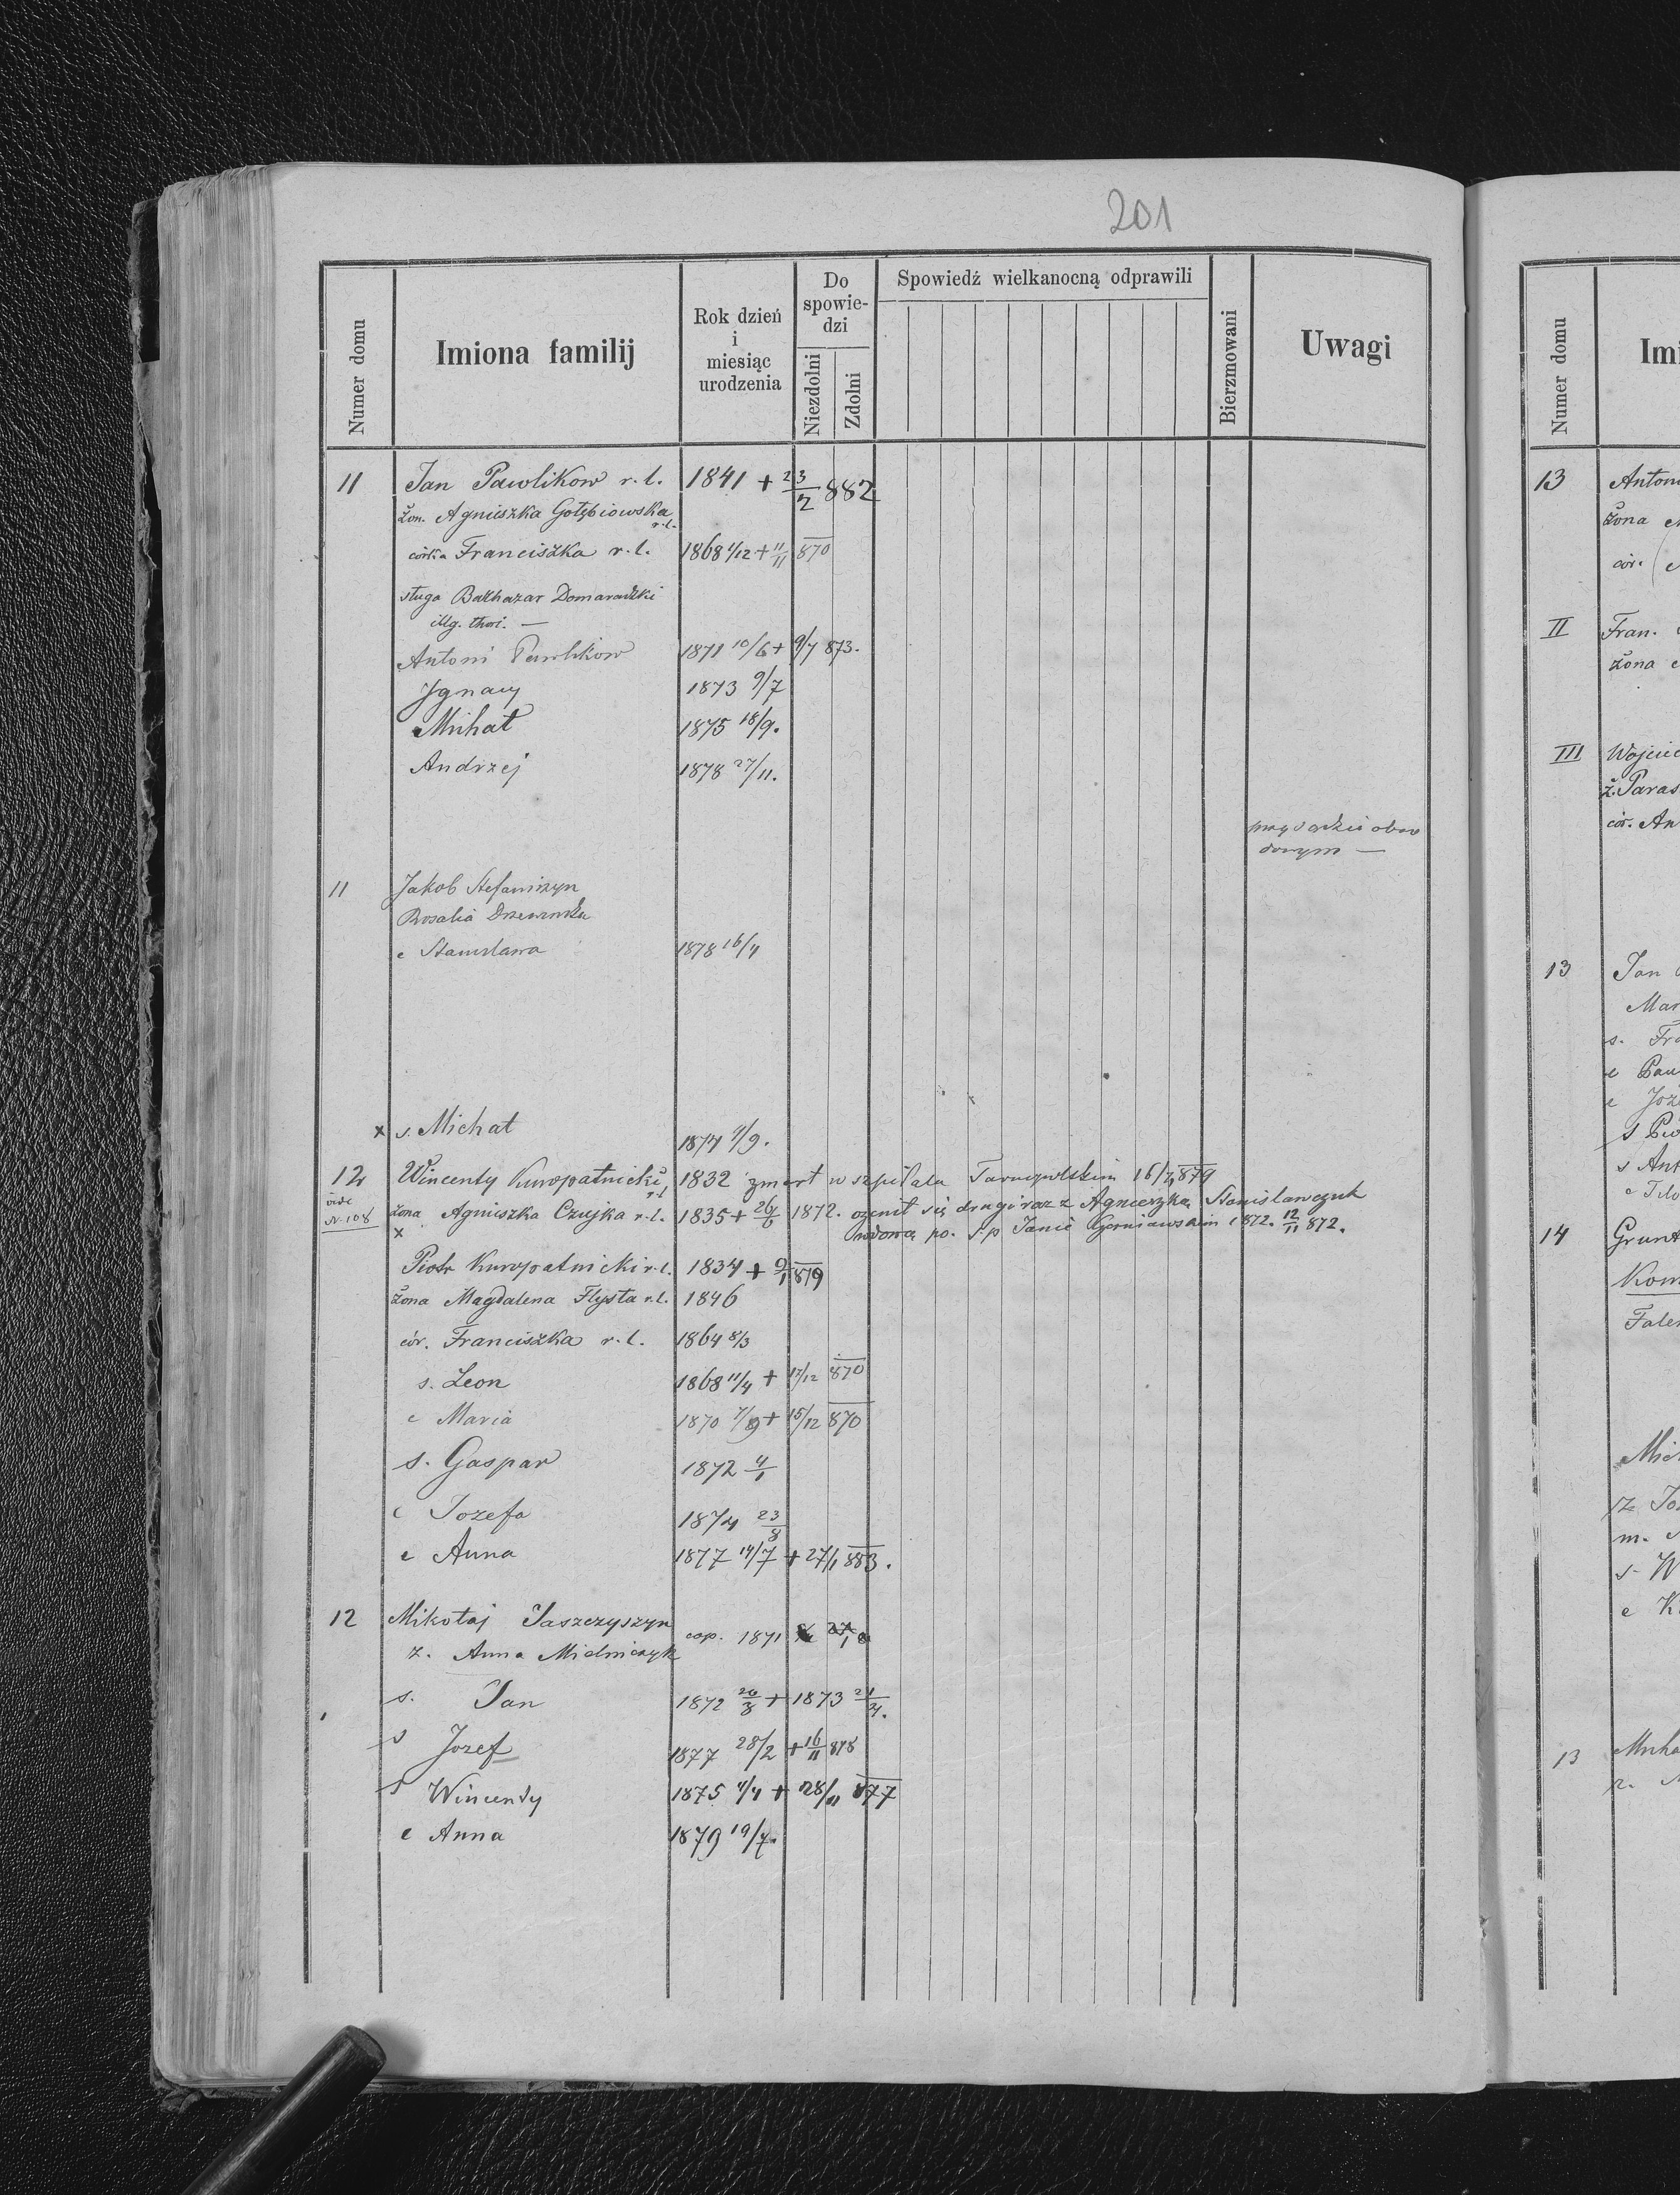 201
Numer domu
Imiona familij
Rok dzień
i
miesiąc
urodzenia
Do
spowie-
dzi
Niezdolni
Zdolni
Spowiedź wielkanocną odprawili
Bierzmowani
Uwagi
11 Jan Pawlikow r. l. 1841 + 23/2 882
żon. Agnieszka Gołębiowska r. l.
córka Franciszka r. l. 1868 1/12 + 11/11 870
sługa Balthazar Domaradzki
illg. thori. —
Antoni Pawlikow 1871 10/6 + 9/7 873.
Ignacy 1873 9/7
Michał 1875 18/9.
Andrzej 1878 27/11.
11 Jakob Stefaniszyn
Rosalia
c Stanisława 1878 16/4
x s. Michał 1874 1/9.
12 Wincenty Kuropatnicki r. l. 1832 zmarł w szpitalu Tarnopolskim 16/4 879
vide N. 108 żona Agnieszka Czujka r. l. 1835 + 26/6 1872. ożenił się drugi raz z Agnieszką Stanisławczuk
x wdową po. ś. p Janie Gorniawskim 1872. 12/11 872.
Piotr Kuropatnicki r. l. 1834 + 9/1 879
żona Magdalena Flysta r. l. 1846
cór. Franciszka r. l. 1864 8/3
s. Leon 1868 11/4 + 17/12 870
c Maria 1870 7/9 + 15/12 870
s. Gaspar 1872 4/1
c Jozefa 1874 23/8
c Anna 1877 14/7 + 27/1 883.
12 Mikołaj Jaszczyszyn cop. 1871
z. Anna Mielniczyk
s. Jan 1872 26/8 + 1873 21/4.
s Jozef 1877 28/2 + 16/11 878
s Wincenty 1875 4/4 + 28/11 877
c Anna 1879 19/7.
Numer domu
Imi
13 Anton
żona
cór.
II Fran.
żona
III Wojcie
ż. Paras
cór. An
13 Jan
Mar
s. Fra
c Pau
c Joz
s Pio
s Ant
c
14 Grunt
Kom
Fale
Mic
ż Jo
m.
s. W
c K
13
ż.